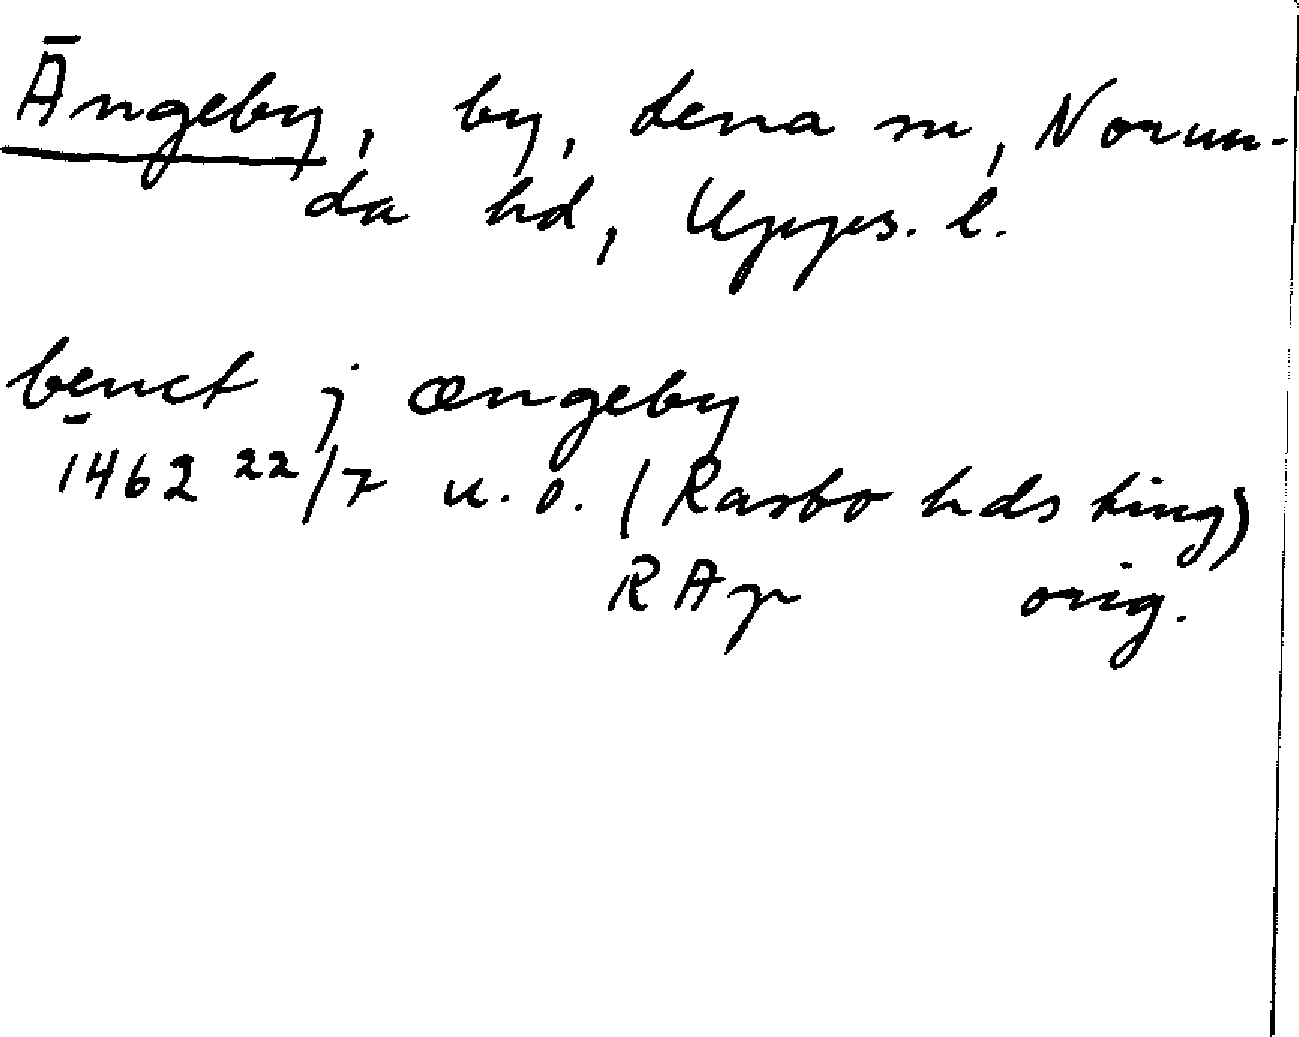 Ängeby, by, Lena sn, Norun-
da hd, Upps. l.
benct j ængeby
1462 22/7 u. o. (Rasbo hds ting)
RAp orig.